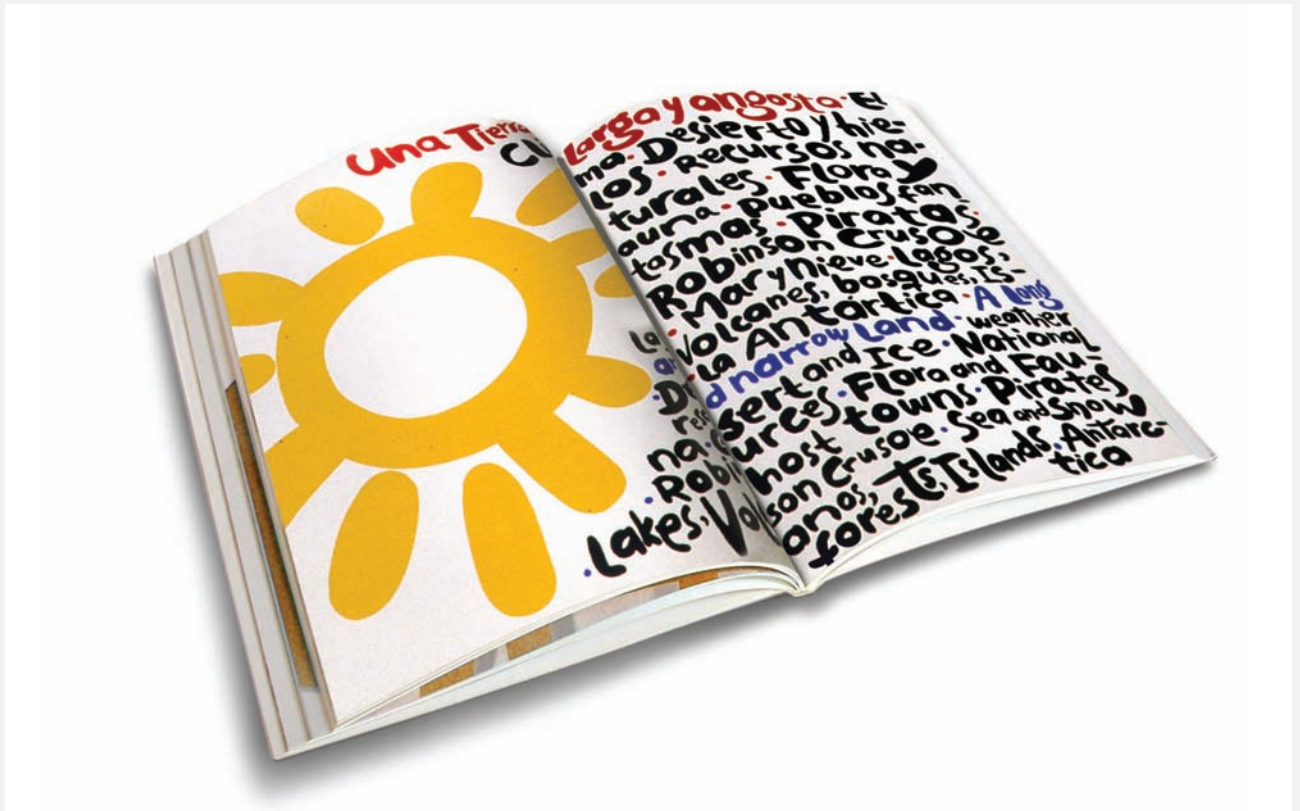 Una Tierra Larga y angosta · El
ma · Desierto y hie-
los · Recursos na-
turales · Flora y
auna · Pueblos fan
tasmas · Piratas ·
Robinson Crusoe
· Mar y Nieve · Lagos,
Volcanes, bosques, Is-
La Antártica · A Long
and narrow Land · weather
· Desert and Ice · National
resources · Flora and Fau-
na · Ghost towns · Pirates
· Robinson Crusoe · Sea and Snow
· Lakes, Volcanos,
forests, Islands. Antarc-
tica